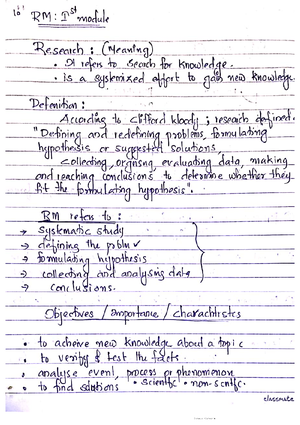 RM: Ist module
Research : (Meaning)
• It refers to search for knowledge.
• is a systemized effort to gain new knowledge.
Definition :
According to Clifford Woody ; research defined.
"Defining and redefining problems, formulating
hypothesis or suggested solutions,
collecting, orgnising, evaluating data, making
and reaching conclusions to determine whether they
fit the formulating hypothesis".
RM refers to :
→ systematic study
→ defining the prblm
→ formulating hypothesis
→ collecting and analysing data
→ conclusions.
Objectives / Importance / Charachtistcs
• to acheive new knowledge about a topic
• to verify & test the facts
• analyse event, process or phenomonon
• to find solutions • scientfc • non-scntfc.
classmate